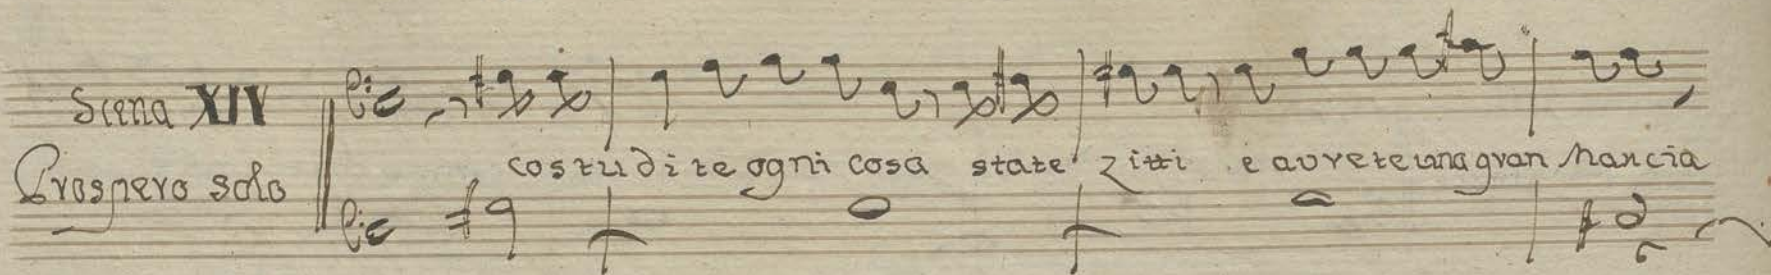 Scena XIV
Prospero solo
costudite ogni cosa state zitti e avrete una gran Mancia